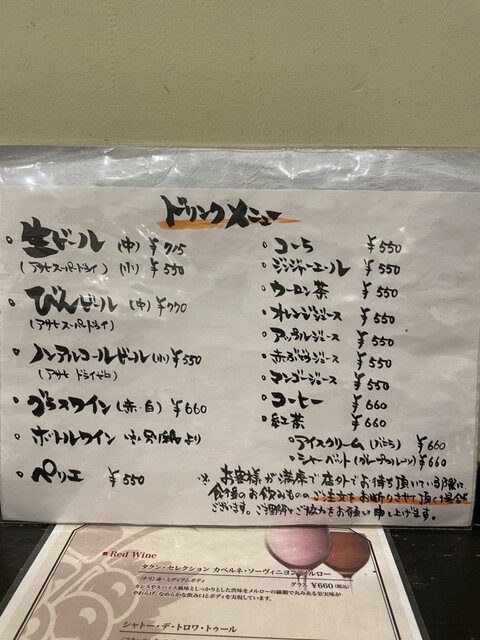 ドリンクメニュー
・生ビール (中) ¥715
(アサヒスーパードライ) (小) ¥550
・びんビール (中) ¥770
(アサヒスーパードライ)
・ノンアルコールビール (小) ¥550
(アサヒ ドライゼロ)
・グラスワイン (赤・白) ¥660
・ボトルワイン ※別紙より
・ペリエ ¥550
・コーラ ¥550
・ジンジャーエール ¥550
・ウーロン茶 ¥550
・オレンジジュース ¥550
・アップルジュース ¥550
・赤ぶどうジュース ¥550
・マンゴージュース ¥550
・コーヒー ¥660
・紅茶 ¥660
・アイスクリーム (バニラ) ¥660
・シャーベット (グレープフルーツ) ¥660
※お客様が満席で店外でお待ち頂いている際に
食後のお飲みものの ご注文をお断りさせて頂く場合が
ございます。ご理解とご協力をお願い申し上げます。
■Red Wine
タクン・セレクション カベルネ・ソーヴィニヨン メルロー
(チリ) 赤・ミディアムボディ
グラス ¥660(税込)
カシスやスパイス風味としっかりとした渋味をメルローの繊細で丸みある果実味が
やわらげ、なめらかな飲み口とボディを実現しています。
シャトー・デ・トロワ・トゥール